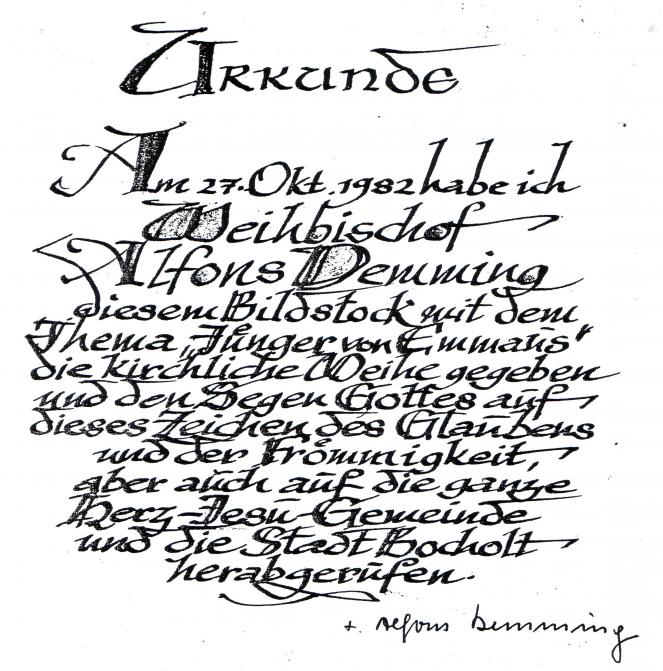 Urkunde
Am 27. Okt. 1982 habe ich
Weihbischof
Alfons Demming
diesem Bildstock mit dem
Thema „Jünger von Emmaus"
die kirchliche Weihe gegeben
und den Segen Gottes auf
dieses Zeichen des Glaubens
und der Frömmigkeit,
aber auch auf die ganze
Herz-Jesu-Gemeinde
und die Stadt Bocholt
herabgerufen.
+ Alfons Demming